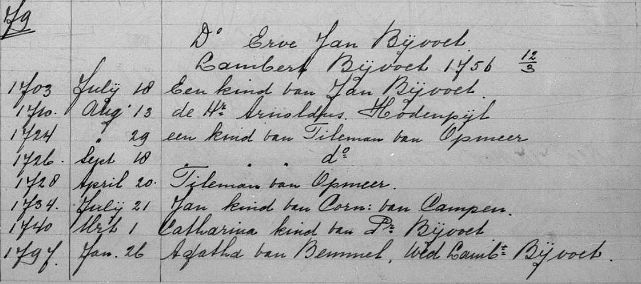 79
Do Erve Jan Bijvoet.
Lambert Bijvoet 1756 12/3
1703 July 18 Een kind van Jan Bijvoet.
1710. Aug 13 de Hr. Arnoldus. Hodenpijl
1724 " 29 een kind van Tileman van Opmeer
1726. Sept 18 " " " do
1728 April 20. Tileman van Opmeer.
1734. July 21 Jan kind van Corn: van Campen.
1740 Mrt 1 Catharina kind van Pr. Bijvoet
1797. Jan. 26 Agatha van Bemmel, Wed Lambts Bijvoet.